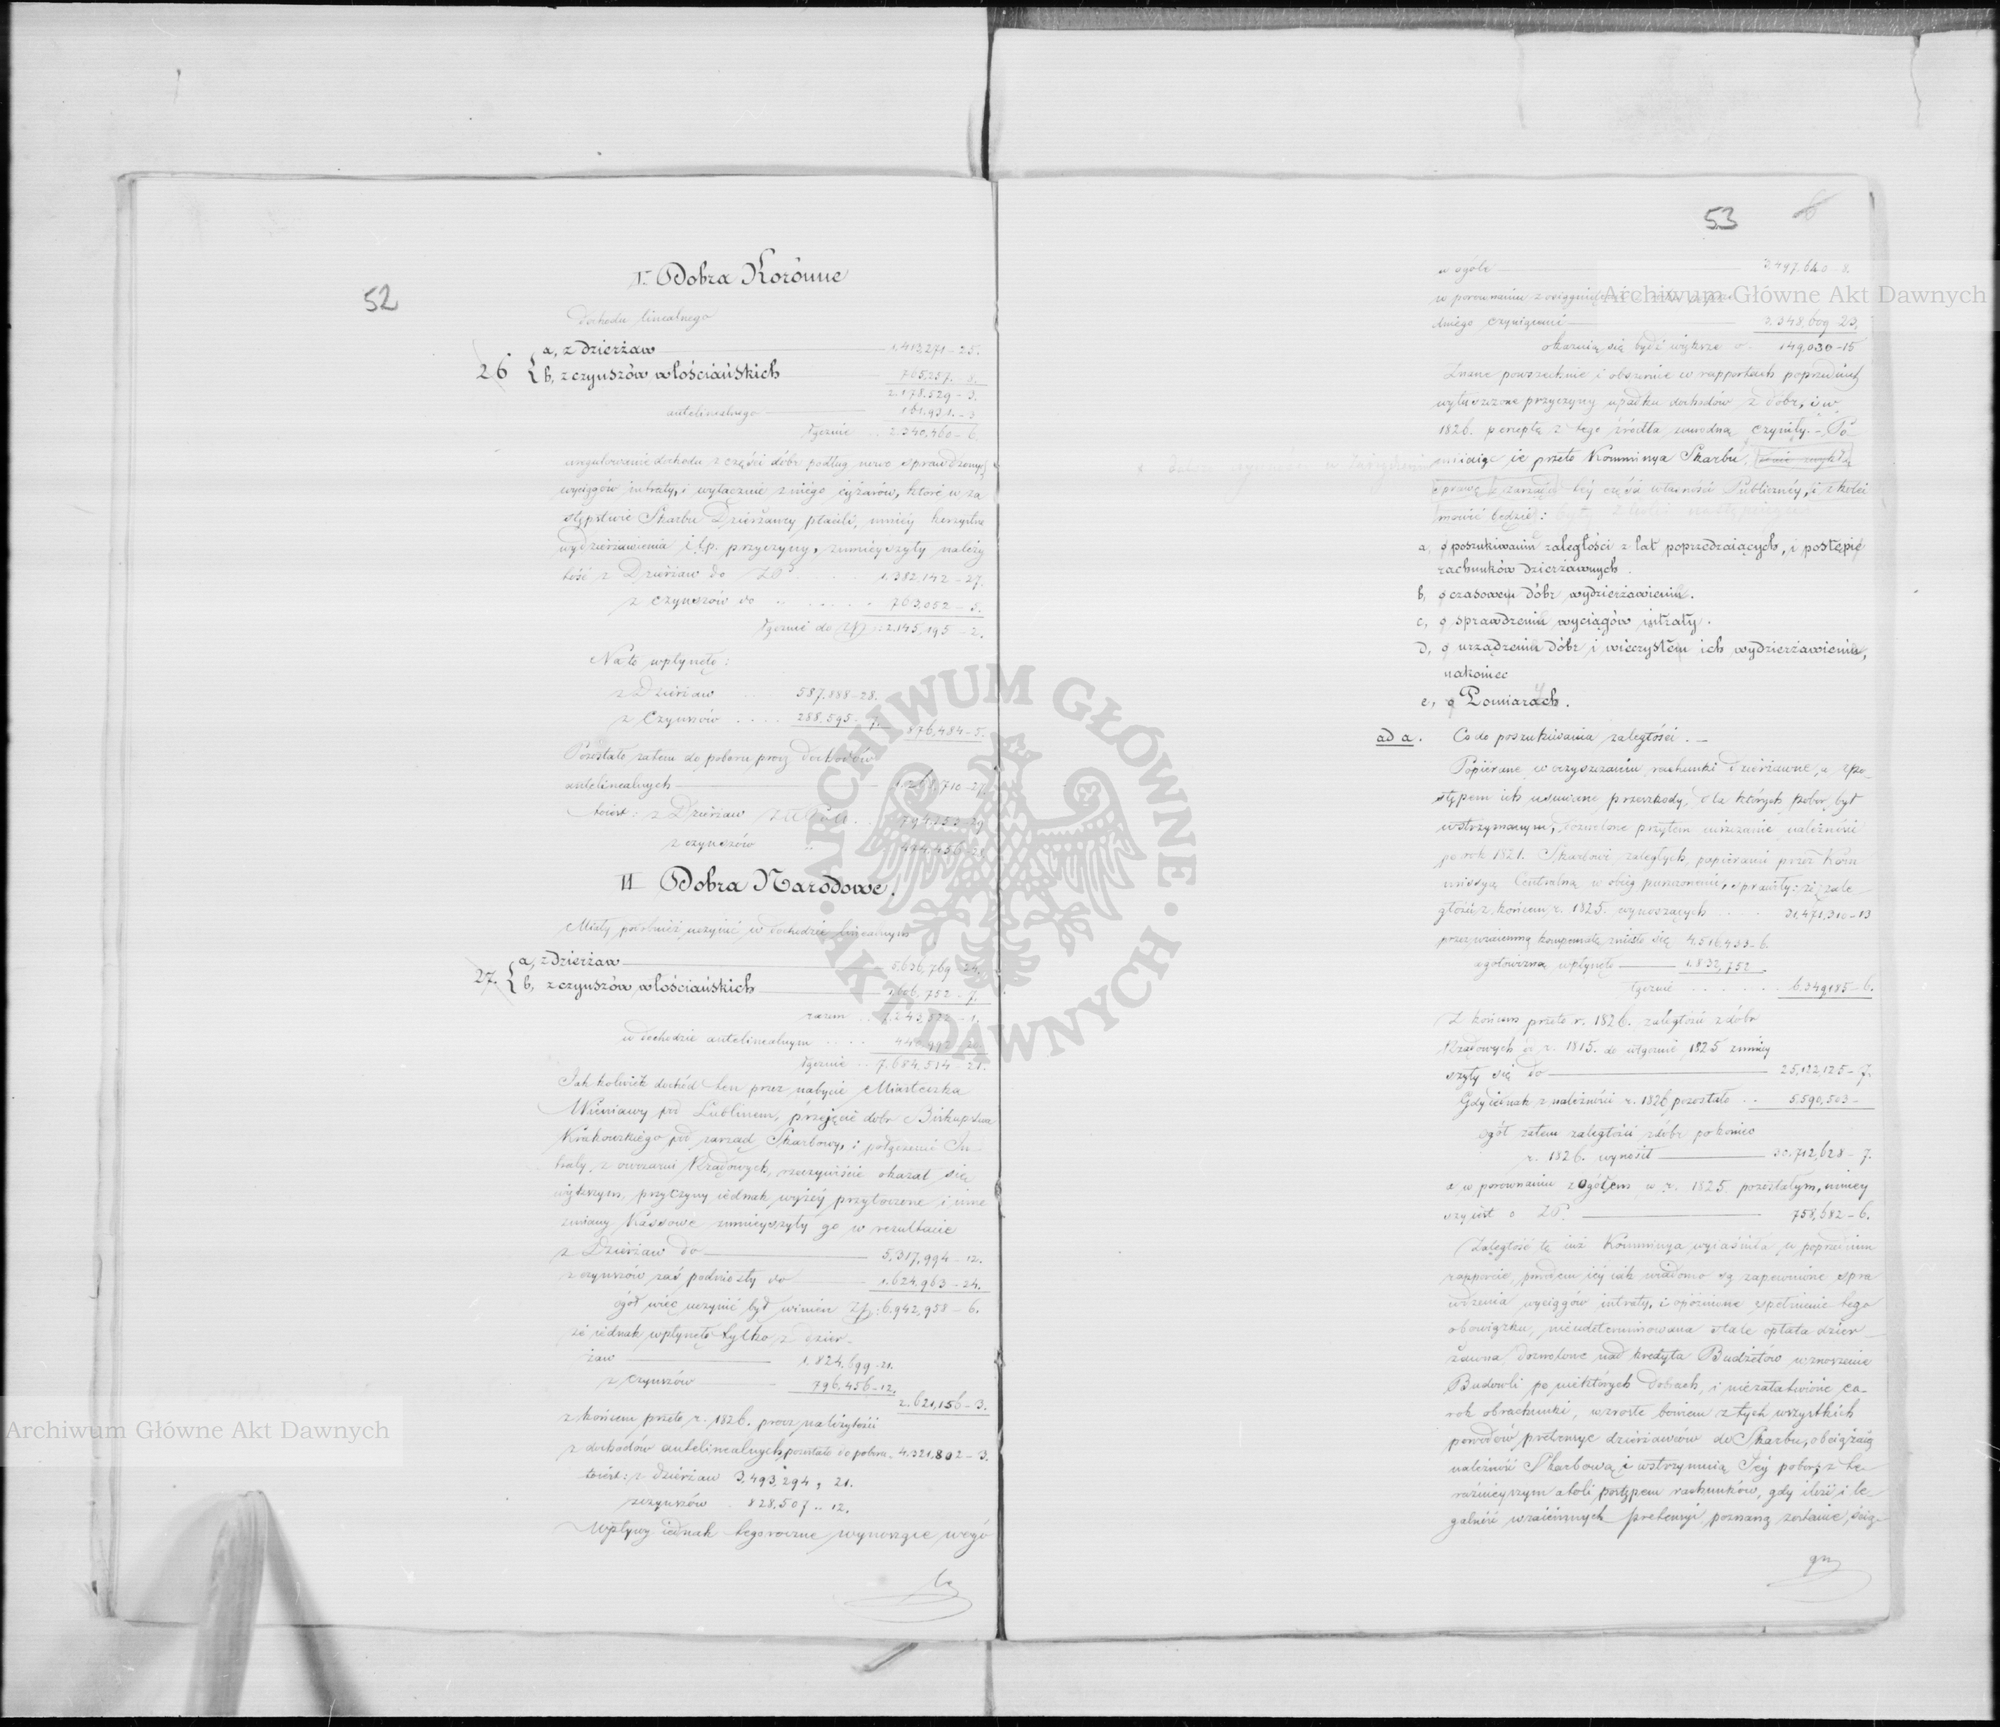 52
I. Dobra Korónne
dochodu linealnego
26 { a, z dzierżaw 1.413,271-25.
b, z czynszów włościańskich 765,257.-8.
2.178.529-3.
antelinealnego 161.931.-3
łącznie 2.340,460-6.
uregulowanie dochodu z części dóbr podług nowo sprawdzonych
wyciągów intraty, i wyłączenie z niego ciężarów, które w za
stępstwie Skarbu Dzierżawcy płacili, mniéj korzystne
wydzierżawienia i t.p. przyczyny, zmnieyszyły należy
tość z Dzierżaw do ZłP 1.382,142-27.
z czynszów do 763,052-5.
łącznie do Zł: 2.145,195-2.
Na to wpłynęło:
z Dzierżaw 587.888-28.
z Czynszów 288,595-7.
876,484-5.
Pozostało zatem do poboru prócz dochodów
antelinealnych 1.268,710-27.
toiest: z Dzierżaw 794,253-29
z czynszów 474.456-28
II Dobra Narodowe.
Miały podobnież uczynić w dochodzie linealnym
27. { a, z dzierżaw 5.636,769-24.
b, z czynszów włościańskich 1.606.752-7.
razem 7.243,522-1.
w dochodzie antelinealnym 440,992-20
łącznie 7.684,514-21.
Jakkolwiek dochód ten przez nabycie Miasteczka
Wieniawy pod Lublinem, przejęcie dóbr Biskupstwa
Krakowskiego pod zarząd Skarbowy, i połączenie In-
traty z owczarni Rządowych, rzeczywiście okazał się
większym, przyczyny iednak wyżéy przytoczone i inne
zmiany Kassowe zmnieyszyły go w rezultacie
z Dzierżaw do 5,317,994-12.
z czynszów zaś podniosły do 1.624,963-24.
ogół więc uczynić był winien Zł: 6.942,958-6.
że iednak wpłynęło tylko z dzier-
żaw 1.824.699-21.
z czynszów 796,456-12.
2.621,156-3.
z końcem przeto r. 1826. prócz należytości
z dochodów antelinealnych pozostało do poboru. 4.321,802-3.
toiest: z dzierżaw 3.493,294, 21.
z czynszów 828,507..12.
Wpływy iednak tegoroczne wynosząc w ogó
53
w ogóle 3,497.640-8.
w porównaniu z osiągniętemi
dniego czynieniu 3.348,609-23.
okazują się bydź większe o 149,030-15
Znane powszechnie i obszernie w rapportach poprzednich
wyłuszczone przyczyny upadku dochodów z dóbr, i w
1826. perceptę z tego źródła zawodną czyniły.- Po-
miiaiąc ie przeto Kommissya Skarbu,
sprawę z zarządu téy części własności Publicznéy, i z kolei
mówić będzie:
a, o poszukiwaniu zaległości z lat poprzedzaiących, i postępie
rachunków dzierżawnych.
b, o czasowem dóbr wydzierżawieniu.
c, o sprawdzeniu wyciągów intraty.
d, o urządzeniu dóbr i wieczystém ich wydzierżawieniu,
nakoniec
e, o Pomiarach.
ad a. Co do poszukiwania zaległości. -
Popiérane w oczyszczaniu rachunki dzierżawne, a z po-
stępem ich usunione przeszkody, dla których pobór był
wstrzymanym, dozwolone przytém uiszczanie należności
po rok 1821. Skarbowi zaległych papierami przez Kom
missyą Centralną w obieg puszczonemi, sprawiły: iż zale
głości z końcem r. 1825. wynoszących 31,471,310-13
przez wzaiemną kompensatę zniosło się 4.516,433-6.
a gotowizną wpłynęło 1.832,752
łącznie 6.349,185-6.
Z końcem przeto r. 1826. zaległości z dóbr
Rządowych od r. 1815. do włącznie 1825 zmniey
szyły się do 25,122,125-7.
Gdy iednak z należności r. 1826 pozostało 5.590,503-
ogół zatem zaległości z dóbr po koniec
r. 1826. wynosił 30.712,628-7.
a w porównaniu z ogółem w r. 1825. pozostałym, mniey
szy iest o ZłP. 758,682-6.
Zaległość tę iuż Kommissya wyiaśniła w poprzednim
rapporcie, powodem iéy iak wiadomo są zapewnione spra
wdzenia wyciągów intraty, i opóźnione spełnienie tego
obowiązku, nieudeterminowana stale opłata dzier-
żawna, dozwolone nad kredyta Budżetów wznoszenie
Budowli po niektórych dobrach, i niezałatwione co-
rok obrachunki, wzrosłe bowiem z tych wszystkich
powodów pretensye dzierżawców do Skarbu, obciążaią
należność Skarbową i wstrzymuią Jéy pobór; z te-
raźnieyszym atoli postępem rachunków, gdy ilość i le-
galność wzaiemnych pretensyi poznaną zostanie, ścią-
gn
Archiwum Główne Akt Dawnych
ARCHIWUM GŁÓWNE AKT DAWNYCH
Archiwum Główne Akt Dawnych